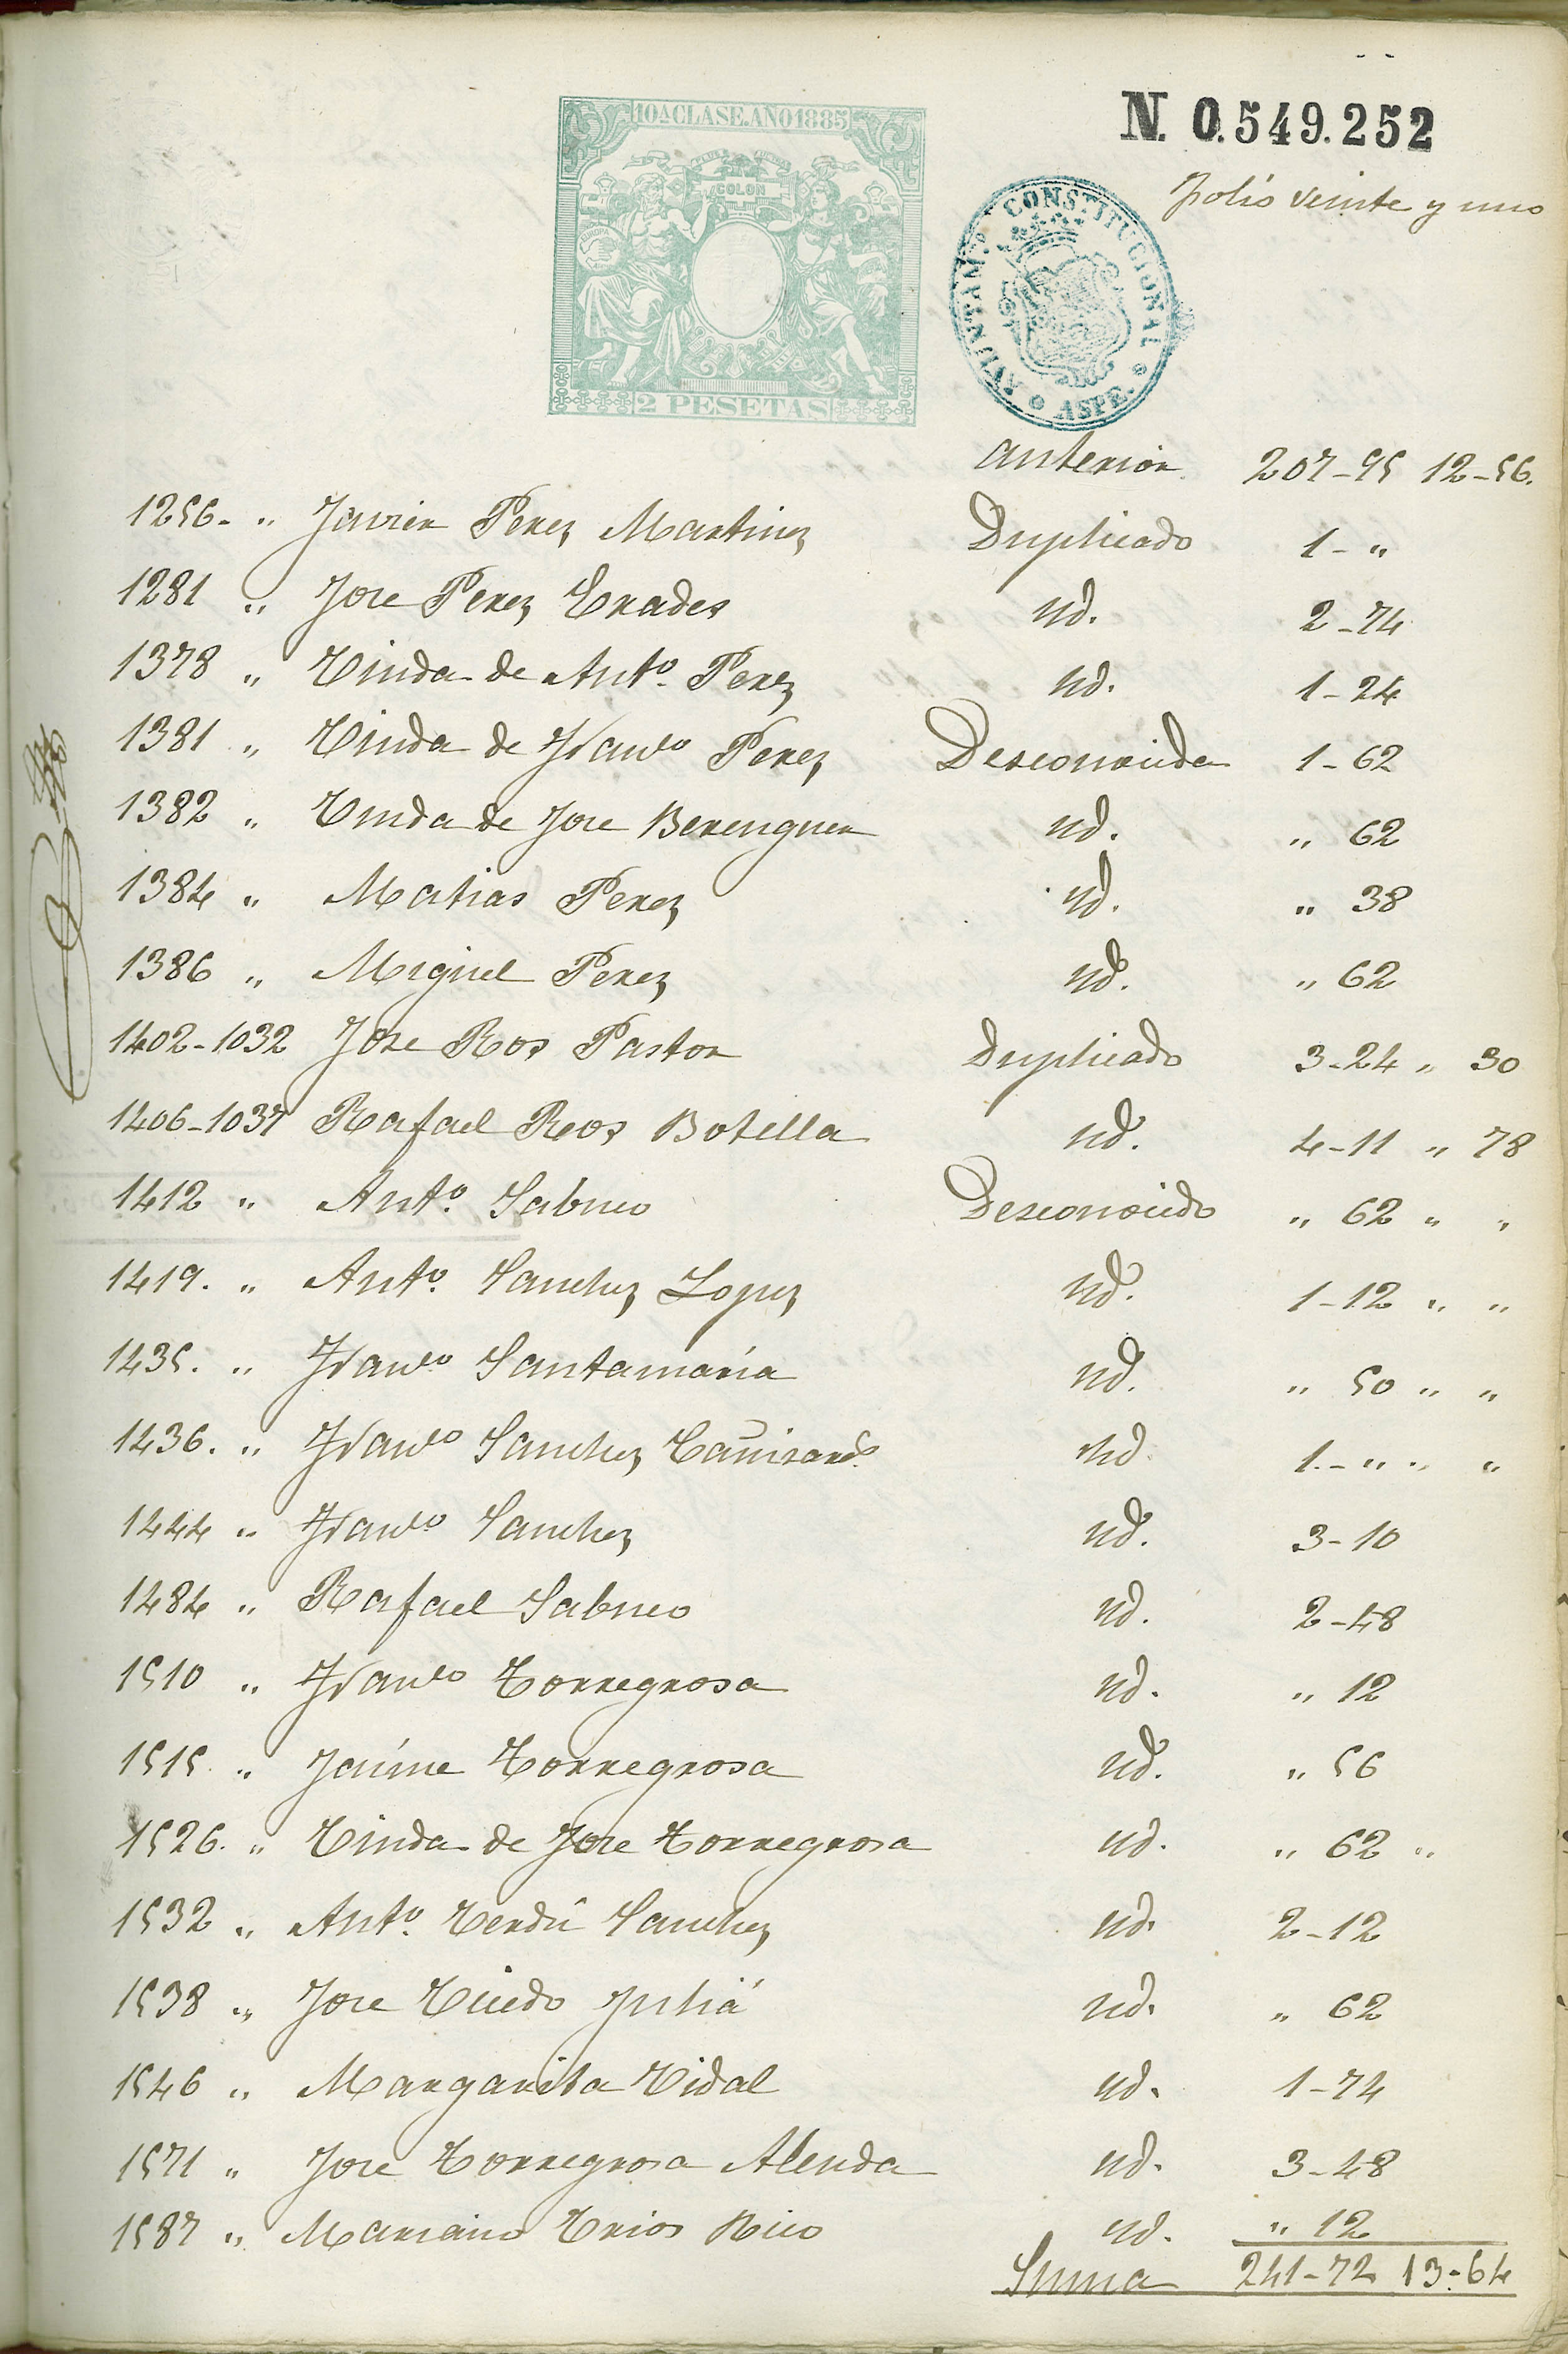 10A CLASE. AÑO 1885
COLON
EUROPA
2 PESETAS
N. 0.549.252
Folio veinte y uno
AYUNTAMTO. CONSTITUCIONAL
ASPE.
anterior. 207-95 12-56.
1256- " Javier Perez Martinez Duplicado 1- "
1281 " Jose Perez Erades Yd. 2-74
1378 " Viuda de Anto. Perez Yd. 1-24
1381 " Viuda de Franco Perez Desconocida 1-62
1382 " Viuda de Jose Berenguer Yd. " 62
1384 " Matias Perez Yd. " 38
1386 " Miguel Perez Yd. " 62
1402-1032 Jose Ros Pastor Duplicado 3-24 " 30
1406-1037 Rafael Ros Botella Yd. 4-11 " 78
1412 " Anto. Sabuco Desconocido " 62 " "
1419. " Anto. Sanchez Lopez Yd. 1-12 " "
1435. " Franco Santamaria Yd. " 50 " "
1436. " Franco Sanchez Cañizares Yd. 1.- " " "
1444 " Franco Sanchez Yd. 3-10
1484 " Rafael Sabuco Yd. 2-48
1510 " Franco Torregrosa Yd. " 12
1515. " Jaime Torregrosa Yd. " 56
1526. " Viuda de Jose Torregrosa Yd. " 62 "
1532 " Anto. Verdú Sanchez Yd. 2-12
1538 " Jose Vicedo Juliá Yd. " 62
1546 " Margarita Vidal Yd. 1-74
1571 " Jose Torregrosa Alenda Yd. 3-48
1587 " Mariano Trios Rico Yd. " 12
Suma 241-72 13-64